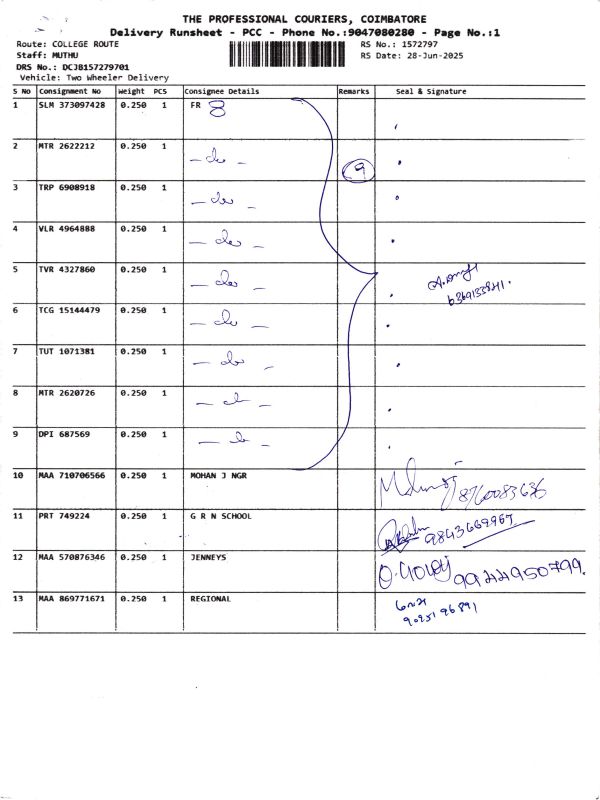 THE PROFESSIONAL COURIERS, COIMBATORE
Delivery Runsheet - PCC - Phone No.:9047080280 - Page No.:1
Route: COLLEGE ROUTE RS No.: 1572797
Staff: MUTHU RS Date: 28-Jun-2025
DRS No.: DCJB157279701
Vehicle: Two Wheeler Delivery
S No Consignment No Weight PCS Consignee Details Remarks Seal & Signature
1 SLM 373097428 0.250 1 FR 8
2 MTR 2622212 0.250 1 - do - 9
3 TRP 6908918 0.250 1 - do -
4 VLR 4964888 0.250 1 - do -
5 TVR 4327860 0.250 1 - do -
6 TCG 15144479 0.250 1 - do -
7 TUT 1071381 0.250 1 - do -
8 MTR 2620726 0.250 1 - do -
9 DPI 687569 0.250 1 - do -
10 MAA 710706566 0.250 1 MOHAN J NGR 8760083636
11 PRT 749224 0.250 1 G R N SCHOOL 9843669967
12 MAA 570876346 0.250 1 JENNEYS 9944950799.
13 MAA 869771671 0.250 1 REGIONAL
9025196891